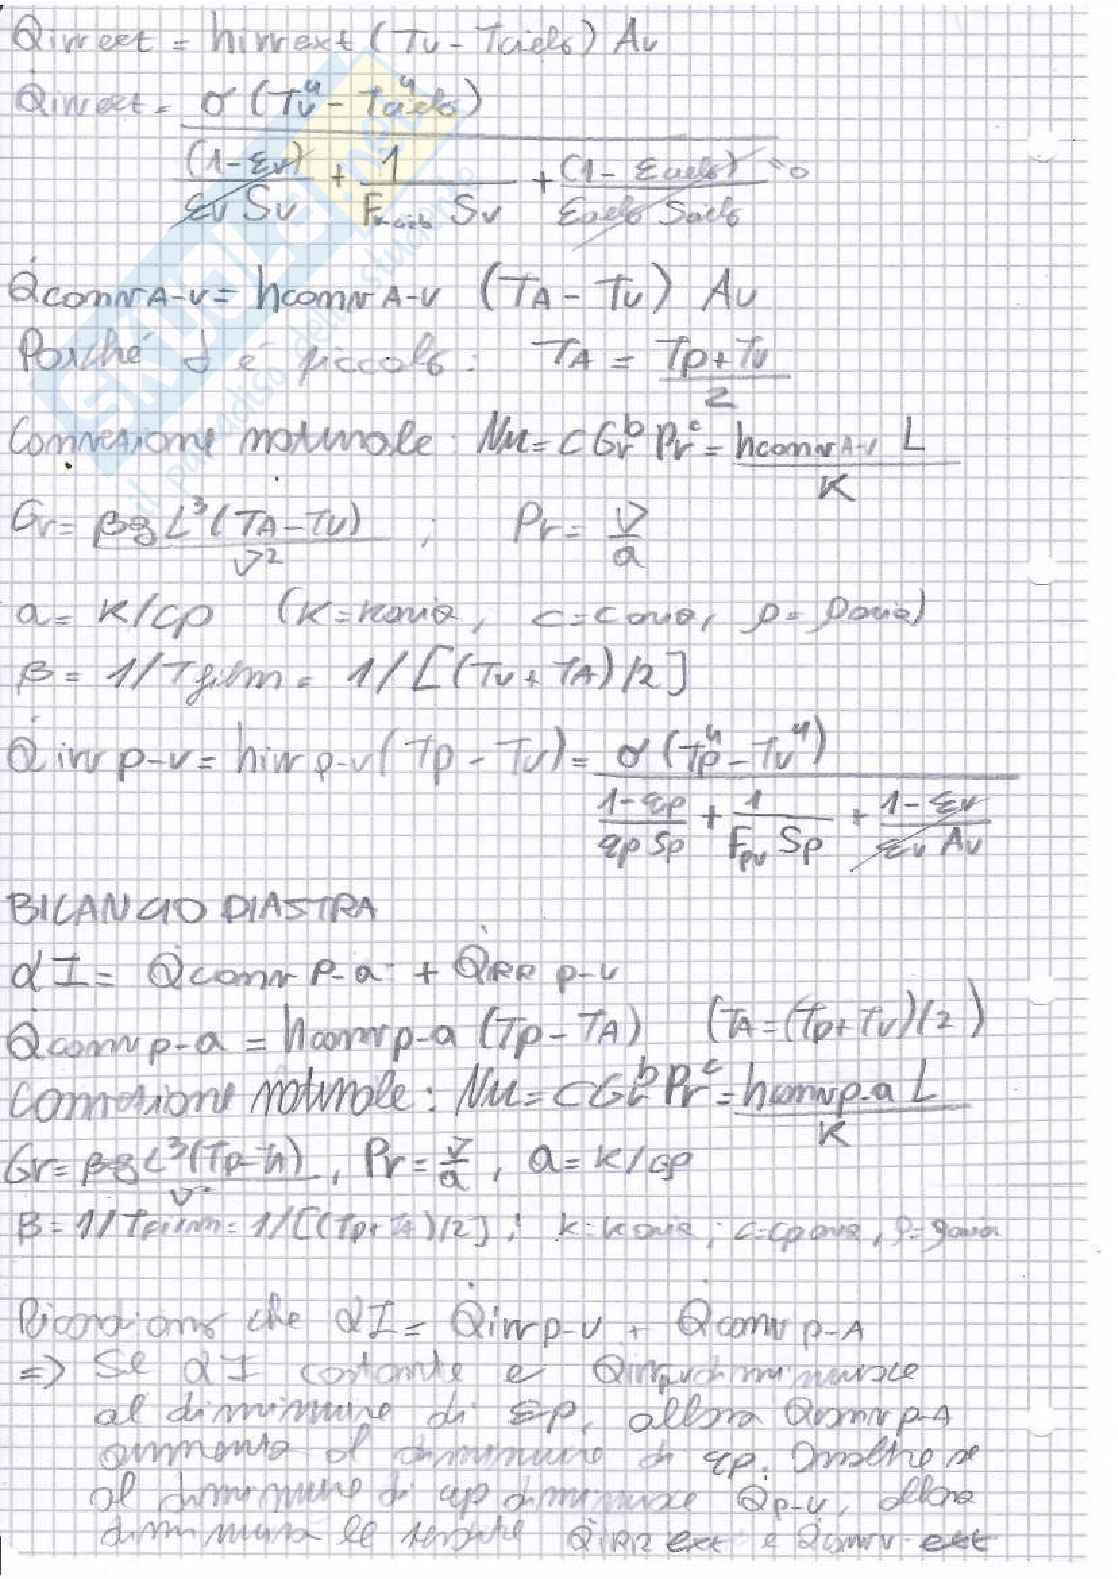 Q̇irrext = hirrext (Tv - Tcielo) Av
Q̇irrext = σ (Tv⁴ - Tcielo⁴)
(1-εv) / εv Sv + 1 / Fv-cielo Sv + (1 - εcielo) / εcielo Scielo = 0
Q̇conv A-v = hconv A-v (TA - Tv) Av
Poiché d è piccolo: TA = Tp + Tv / 2
Convezione naturale: Nu = C Gr^b Pr^c = hconv A-v L / K
Gr = βg L³ (TA - Tv) / ν² ; Pr = ν / a
a = K/cρ (K = Karia, c = caria, ρ = ρaria)
β = 1/Tfilm = 1/[(Tv + TA)/2]
Q̇irr p-v = hirr p-v (Tp - Tv) = σ (Tp⁴ - Tv⁴)
1-εp / εp Sp + 1 / Fpv Sp + 1 - εv / εv Av
BILANCIO PIASTRA
αI = Q̇conv p-a + Q̇RR p-v
Q̇conv p-a = hconv p-a (Tp - TA) (TA = (Tp + Tv)/2)
Convezione naturale: Nu = C Gr^b Pr^c = hconv p-a L / K
Gr = βg L³ (Tp - TA) / ν² , Pr = ν / a , a = K/cρ
β = 1/Tfilm = 1/[(Tp + TA)/2] ; K = Karia ; c = cp aria , ρ = ρaria
Ricordiamo che αI = Q̇irr p-v + Q̇conv p-A
=> Se αI costante e Q̇irr p-v diminuisce
al diminuire di εp, allora Q̇conv p-A
aumenta al diminuire di εp. Inoltre se
al diminuire di εp diminuisce Q̇p-v, allora
diminuisce le Q̇IRR ext e Q̇conv-ext
SKUOLA.net
il paradiso dello studente